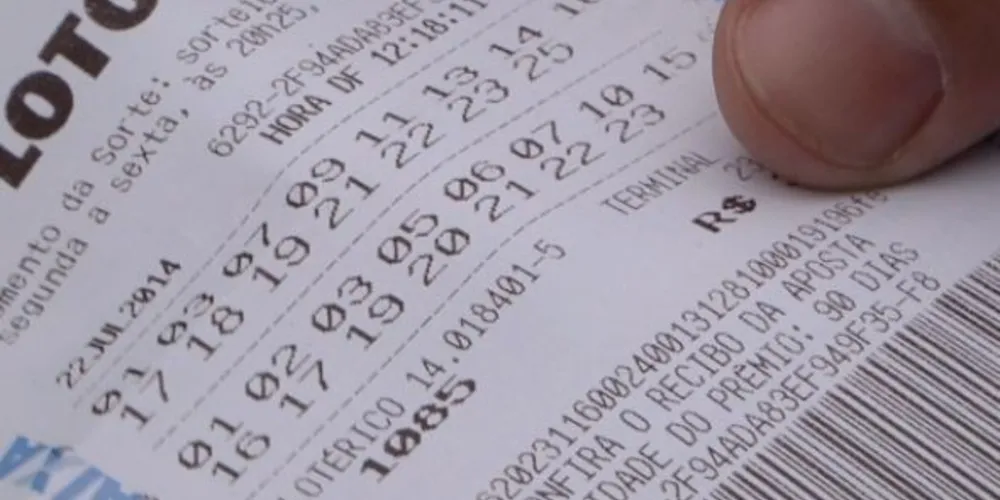 LOTO
da Sorte:
segunda a sexta, às 20h25,
6292-2F94ADA83EF
HORA DF 12:18:11
22JUL2014
01 03 07 09 11 13 14
17 18 19 21 22 23 25
01 02 03 05 06 07 10 15
16 17 19 20 21 22 23
TERMINAL
14.018401-5
R$
1085
O RECIBO DA APOSTA
DO PRÊMIO: 90 DIAS
-2F94ADA83EF949F35-F8